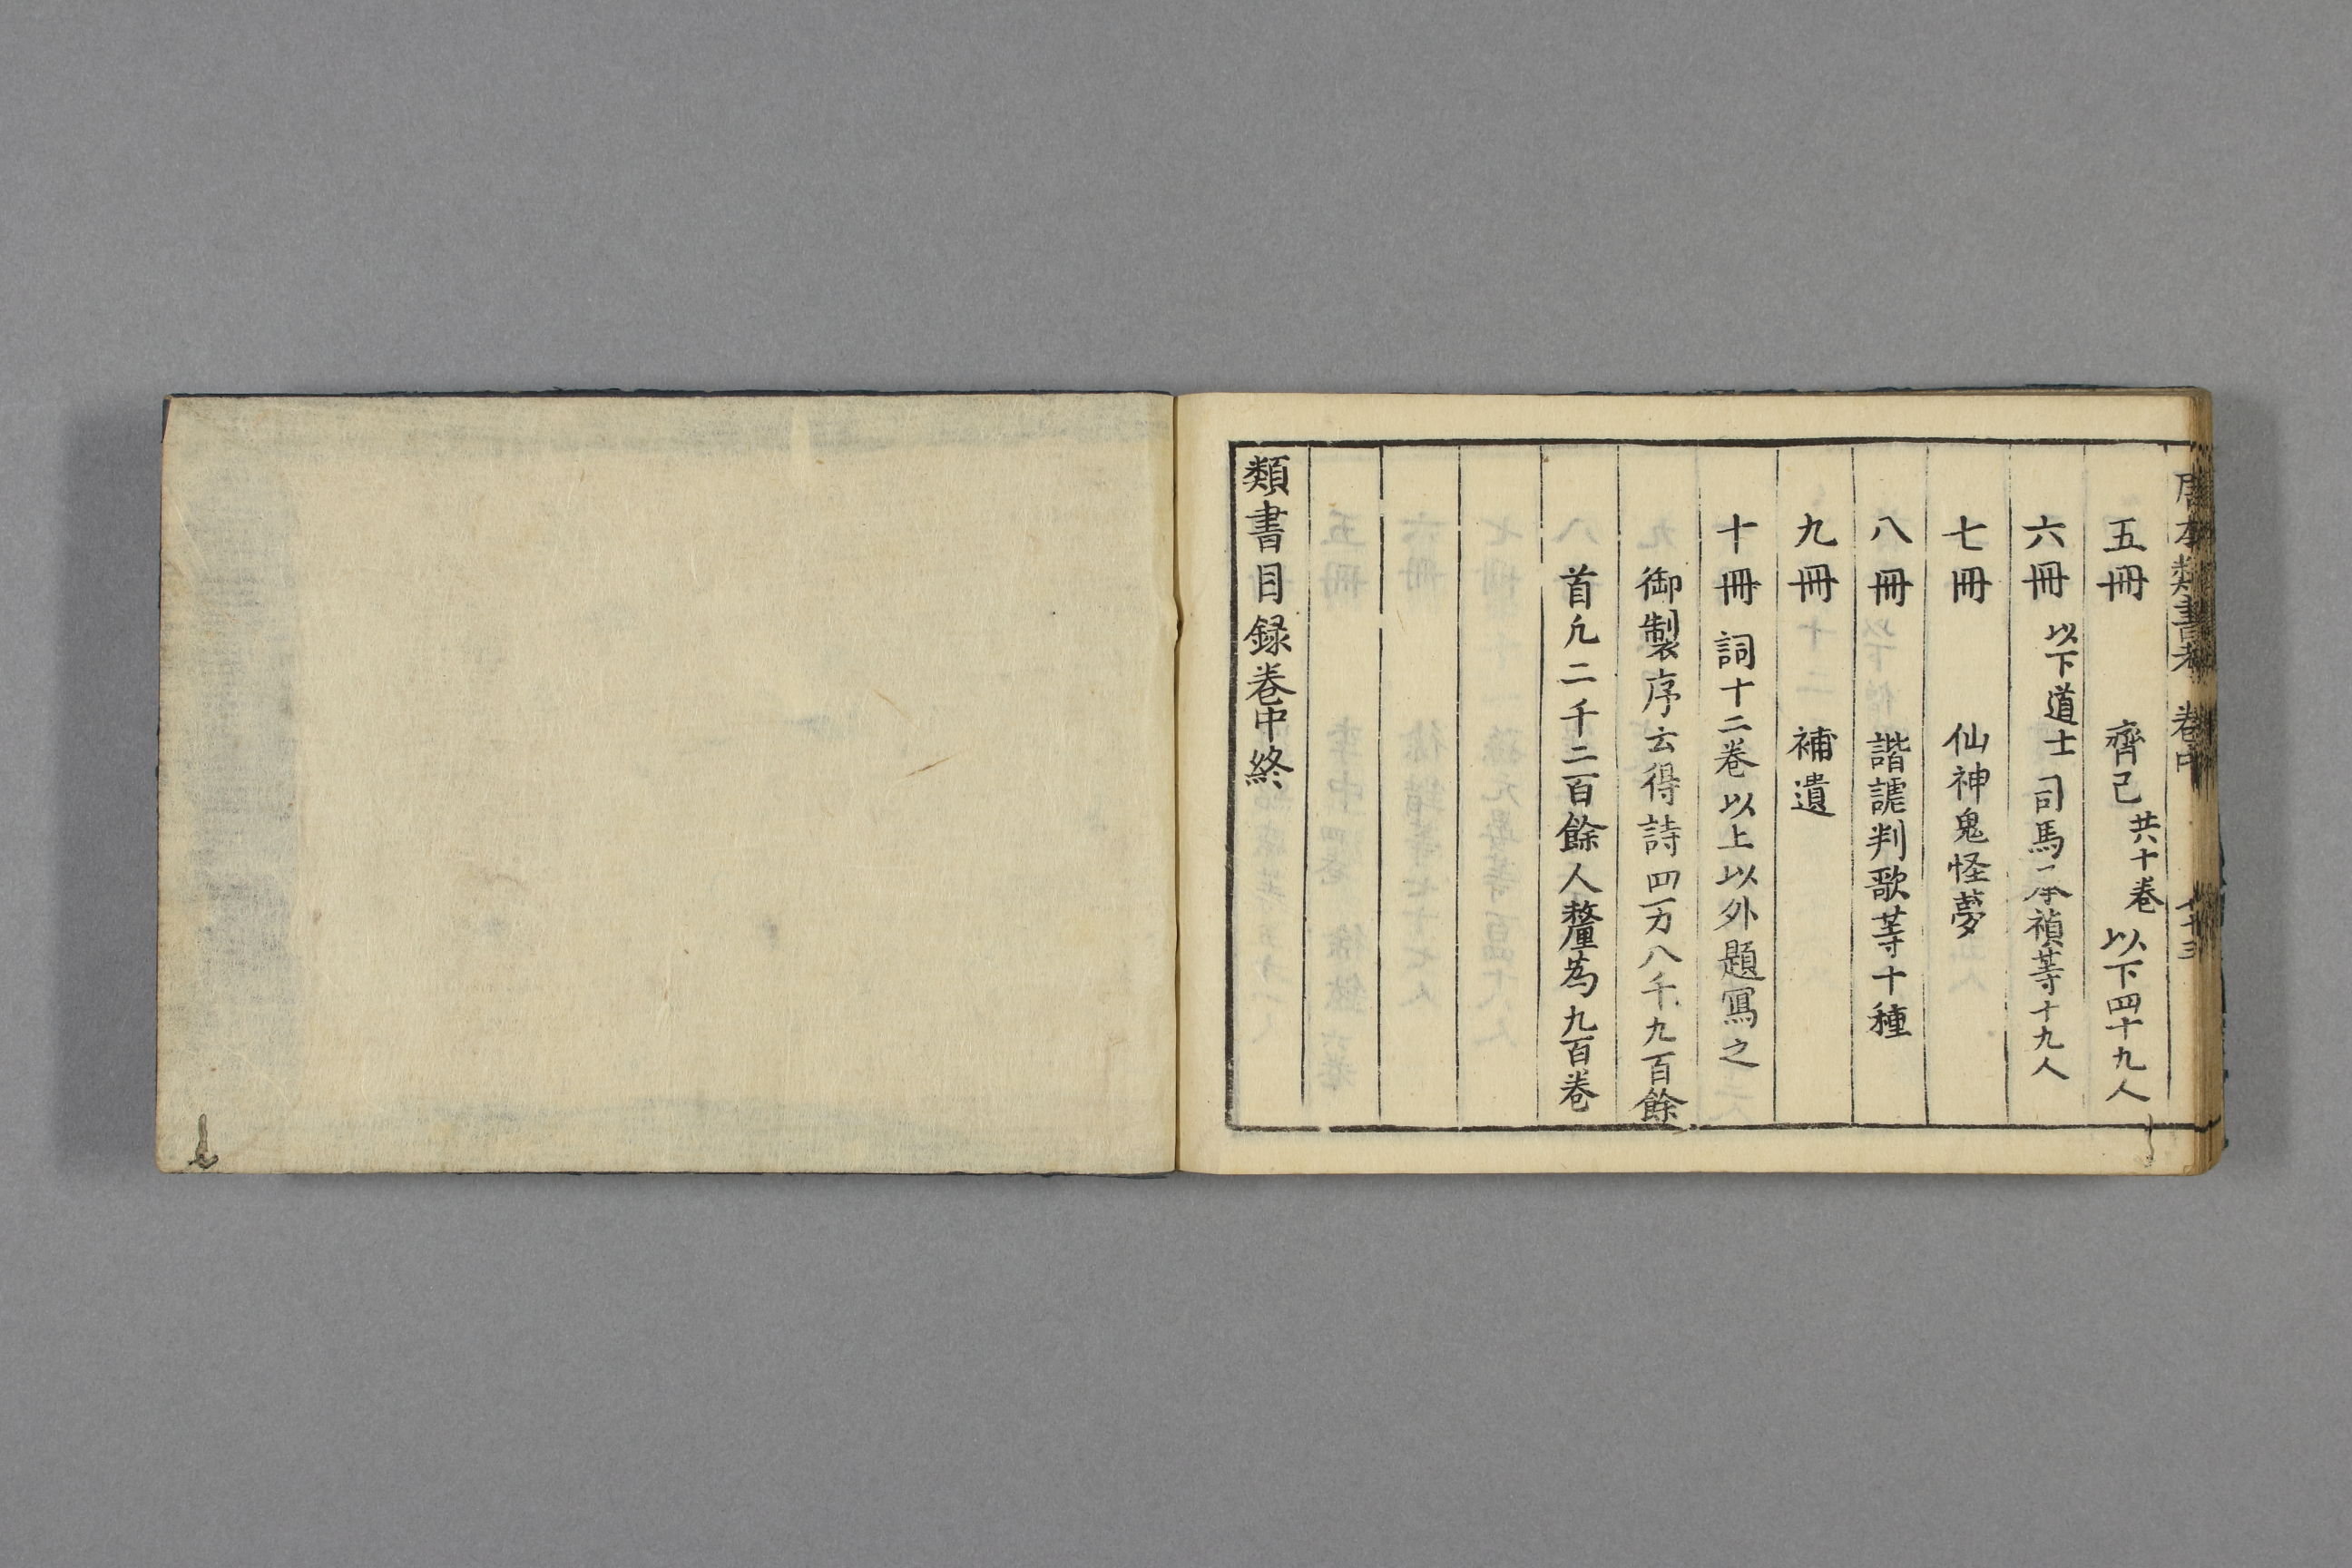 唐本類書考 卷中
五冊 齊己共十卷 以下四十九人
六冊 以下道士 司馬承禎等十九人
七冊 仙神鬼怪夢
八冊 諧謔判歌等十種
九冊 補遺
十冊 詞十二卷 以上以外題寫之
御製序云得詩四万八千九百餘
首凢二千二百餘人釐為九百卷
類書目録卷中終